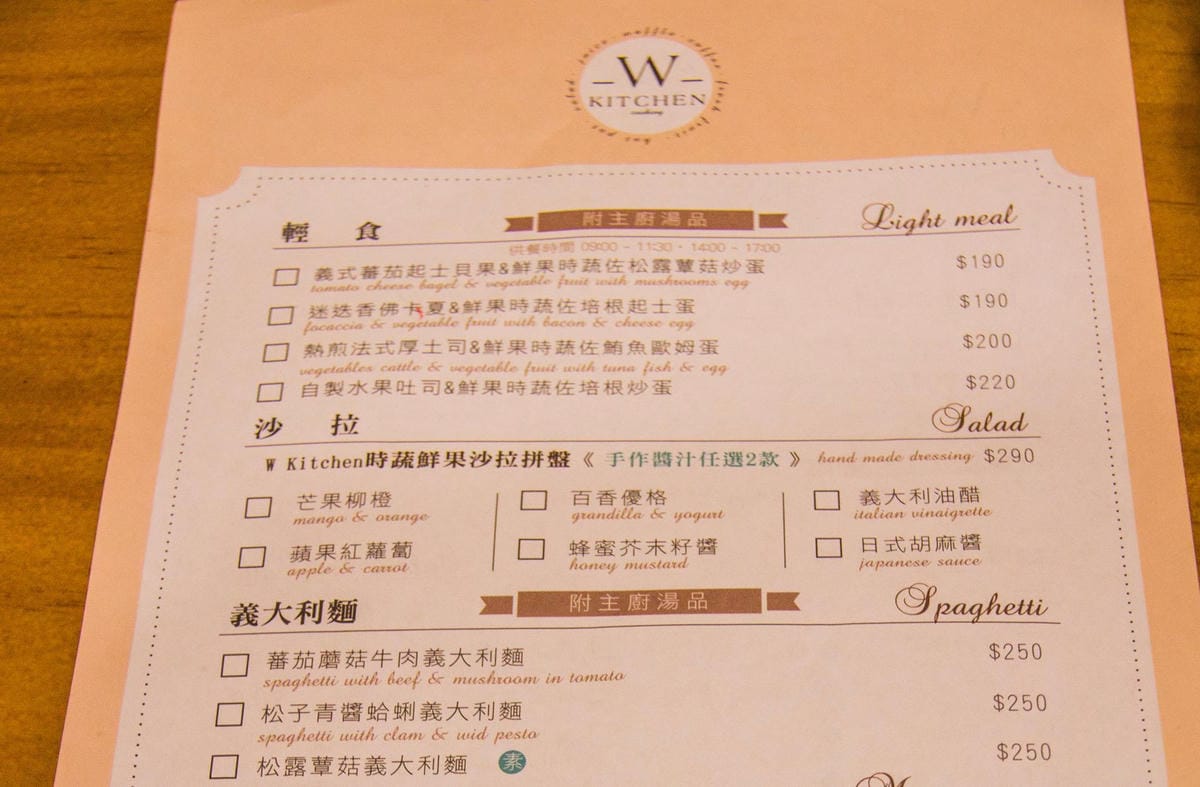 salad · juice · waffle · coffee · fresh fruit
W
KITCHEN
輕食 附主廚湯品 Light meal
供餐時間 09:00 - 11:30 · 14:00 - 17:00
義式蕃茄起士貝果&鮮果時蔬佐松露蕈菇炒蛋 $190
tomato cheese bagel & vegetable fruit with mushrooms egg
迷迭香佛卡夏&鮮果時蔬佐培根起士蛋 $190
focaccia & vegetable fruit with bacon & cheese egg
熱煎法式厚土司&鮮果時蔬佐鮪魚歐姆蛋 $200
vegetables cattle & vegetable fruit with tuna fish & egg
自製水果吐司&鮮果時蔬佐培根炒蛋 $220
沙拉 Salad
W Kitchen時蔬鮮果沙拉拼盤《 手作醬汁任選2款 》 hand made dressing $290
芒果柳橙 百香優格 義大利油醋
mango & orange grandilla & yogurt italian vinaigrette
蘋果紅蘿蔔 蜂蜜芥末籽醬 日式胡麻醬
apple & carrot honey mustard japanese sauce
義大利麵 附主廚湯品 Spaghetti
蕃茄蘑菇牛肉義大利麵 $250
spaghetti with beef & mushroom in tomato
松子青醬蛤蜊義大利麵 $250
spaghetti with clam & wid pesto
松露蕈菇義大利麵 素 $250